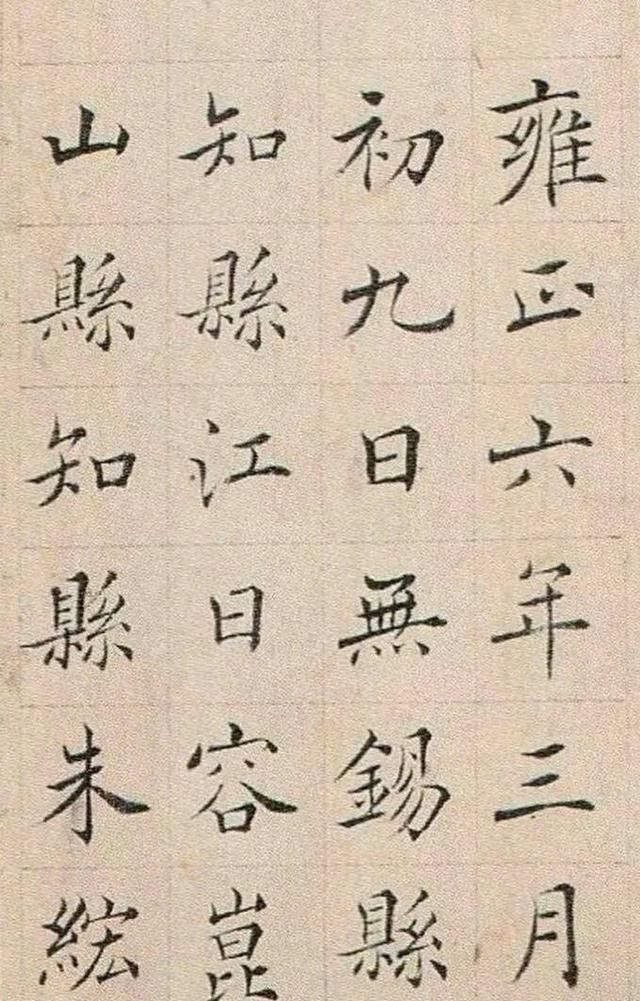 雍正六年三月
初九日無錫縣
知縣江日容崑
山縣知縣朱紘